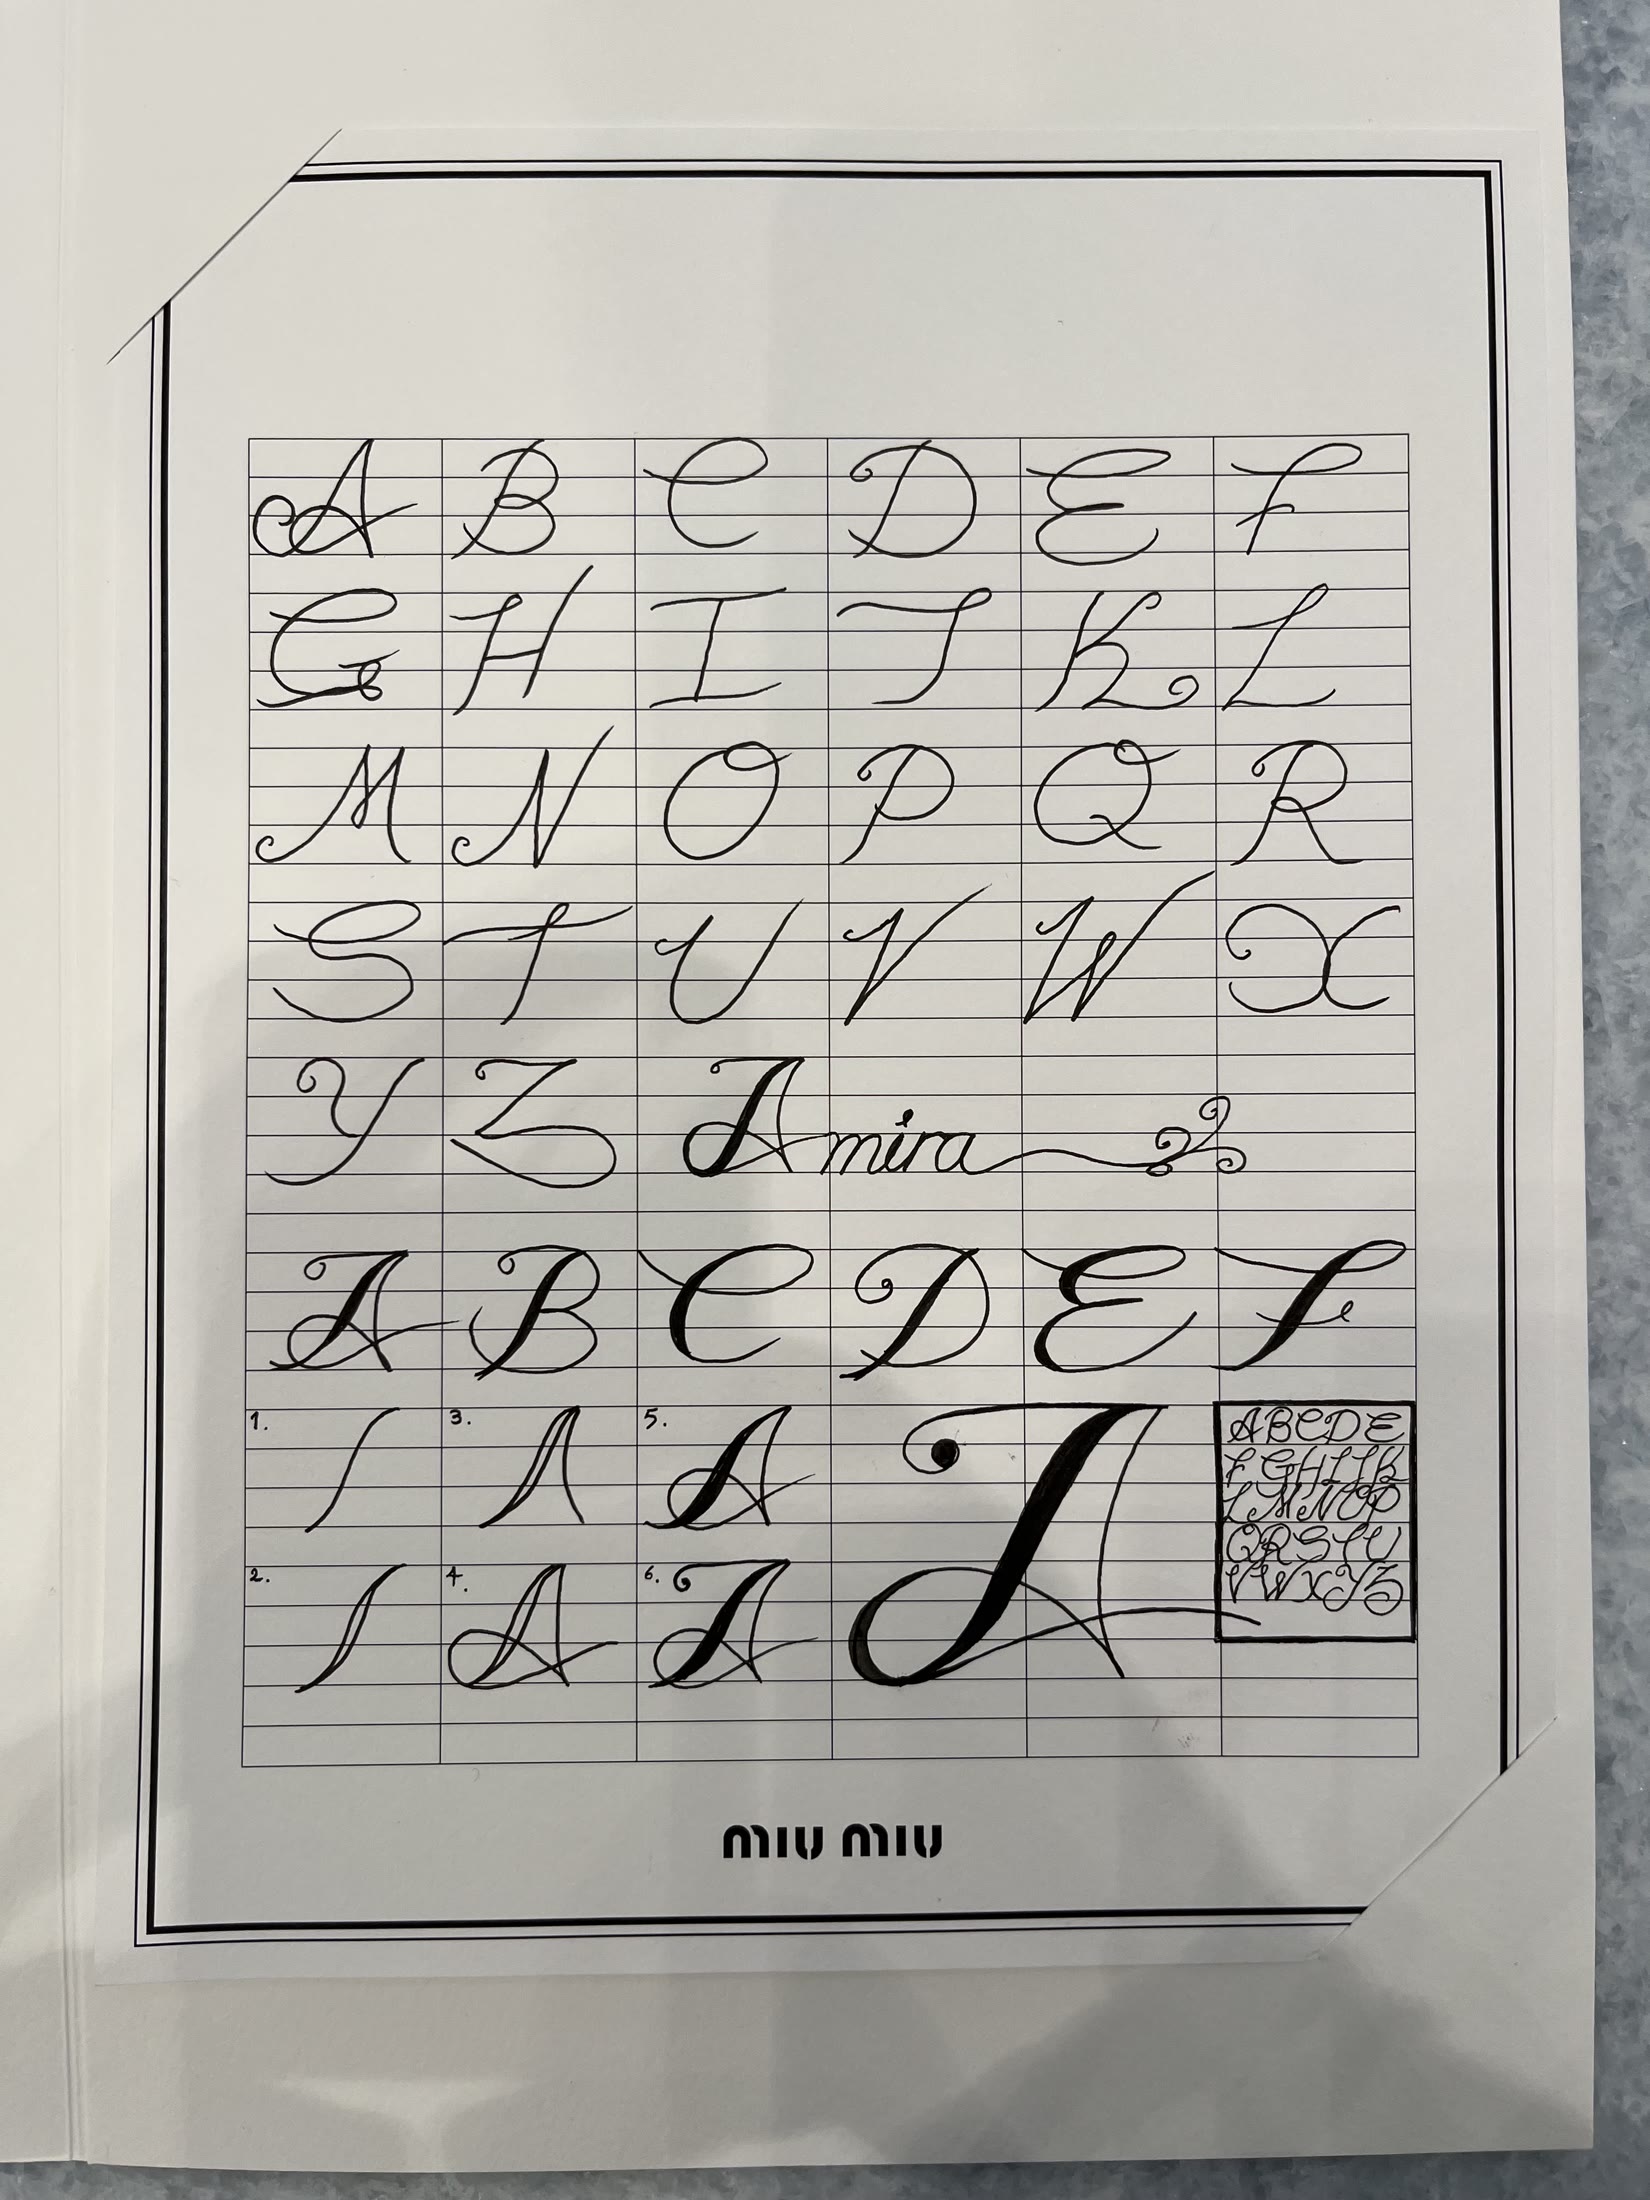 A B C D E F
G H I J K L
M N O P Q R
S T U V W X
Y Z Amira
A B C D E F
1. 3. 5. A A
2. 4. A 6. A
A B C D E
F G H I J K
L M N O P
Q R S T U
V W X Y Z
MIU MIU